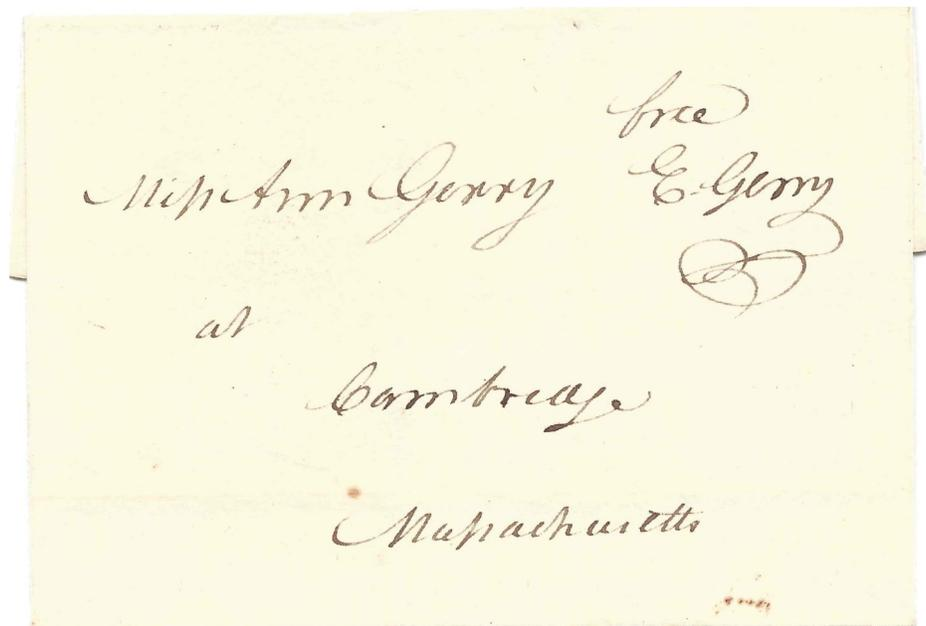 free
Miss Ann Gerry E. Gerry
at
Cambridge
Massachusetts